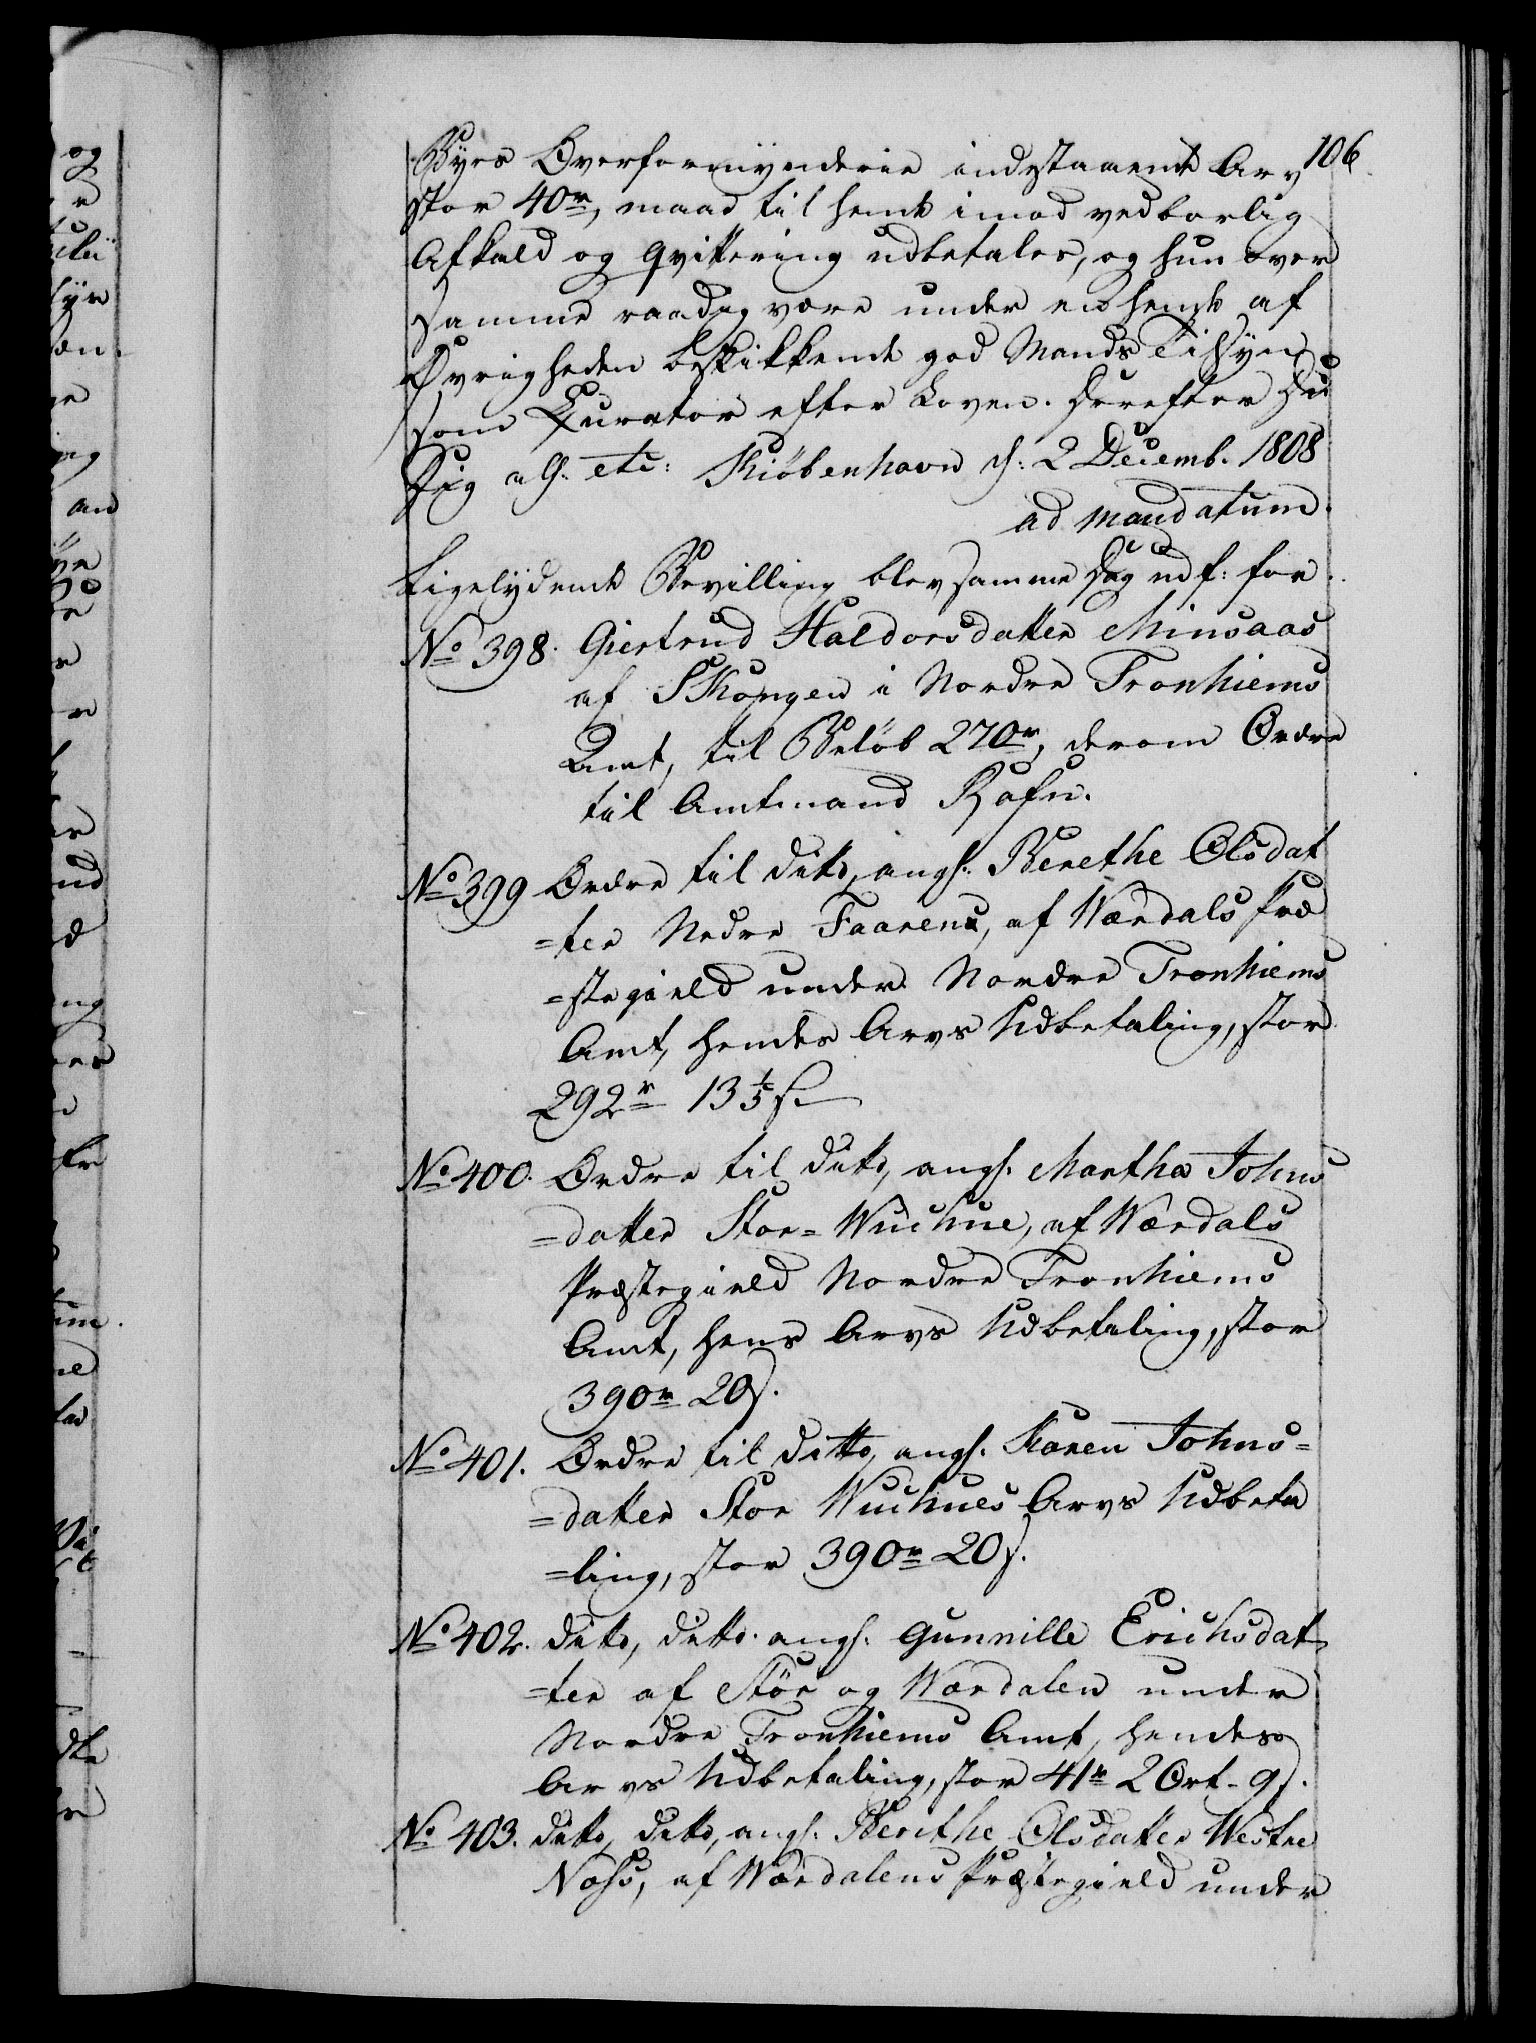 106
Byes Overformynderie indestaaende Arv
stor 40r, maae til hende imod vedbørlig
Afkald og qvittering udbetales, og hun over
samme raadig være under en hende af
Øvrigheden beskikkende god Mands Tilsyn
som Curator efter Loven. Derefter Du
Dig alh. etc: Kiøbenhavn d: 2 Decemb. 1808
ad mandatum.
Ligelydende Bevilling blev samme Dag udf: for
No 398. Giertrud Haldorsdatter Minsaas
af Skongen i Nordre Tronhiems
Amt, til Beløb 270r, derom Ordre
til Amtmand Rafn.
No 399 Ordre til ditto, angl. Berethe Olsdat
=ter Nedre Faaren, af Værdals Præ
=stegield under Nordre Tronhiems
Amt, hendes Arvs Udbetaling, stor
292r 13 1/5 s.
No 400. Ordre til ditto, angl. Martha Johns
=datter Stor=Wuchue, af Værdals
Præstegield Nordre Tronhiems
Amt, hens Arvs Udbetaling, stor
390r 20s.
No 401. Ordre til ditto, angl. Karen Johns=
=datter Stor Wuchues Arvs Udbeta
=ling, stor 390r 20s.
No 402. ditto, ditto. angl. Gunnille Erichsdat
=ter af Stör og Værdalen under
Nordre Tronhiems Amt, hendes
Arvs Udbetaling, stor 41r 2 Ort 9s.
No 403. ditto, ditto, angl. Berithe Olsdatter Westre
Næss, af Værdalens Præstegield under